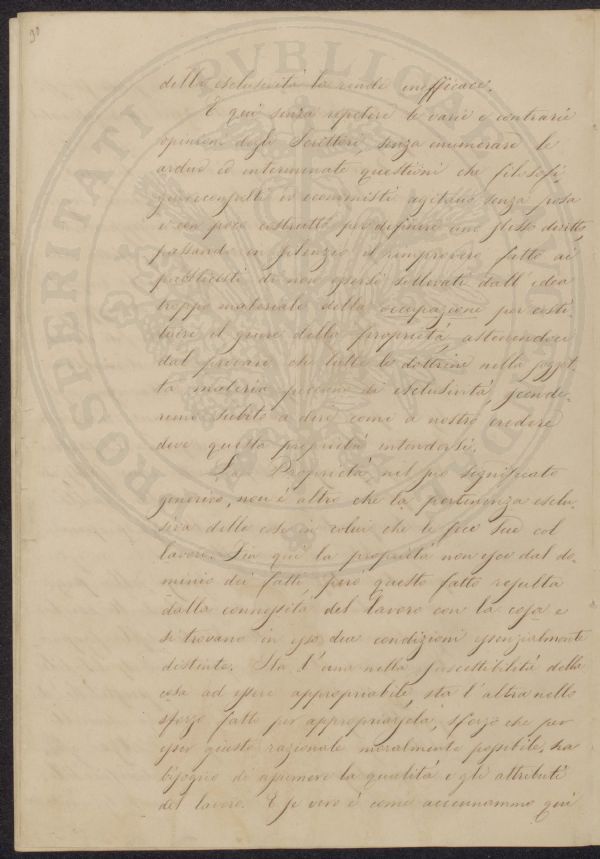 90
della esclusività la rende inefficace.
E qui senza repetere le varie e contrarie
opinioni degli Scrittori, senza enumerare le
ardue ed interminate questioni che filosofi,
giureconsulti ed economisti agitano senza posa
e con poco costrutto per definire uno stesso diritto,
passando in silenzio il rimprovero fatto ai
pubblicisti di non essersi sollevati dall'idea
troppo materiale della occupazione per costi-
tuire il giure della proprietà, astenendoci
dal provare che tutte le dottrine nella sogget-
ta materia peccano di esclusività, scende-
remo subito a dire come a nostro credere
deve questa proprietà intendersi.
La Proprietà nel suo significato
generico, non è altro che la pertinenza esclu-
siva delle cose in colui che le fece sue col
lavoro. Fin qui la proprietà non esce dal do-
minio dei fatti, però questo fatto resulta
dalla connessità del lavoro con la cosa e
si trovano in esso due condizioni essenzialmente
distinte. Sta l'una nella suscettibilità della
cosa ad essere appropriabile, sta l'altra nello
sforzo fatto per appropriarsela, sforzo che per
esser giusto razionale moralmente possibile, ha
bisogno di assumere la qualità e gli attributi
del lavoro. E se vero è come accennammo qui
PROSPERITATI PVBLICAE